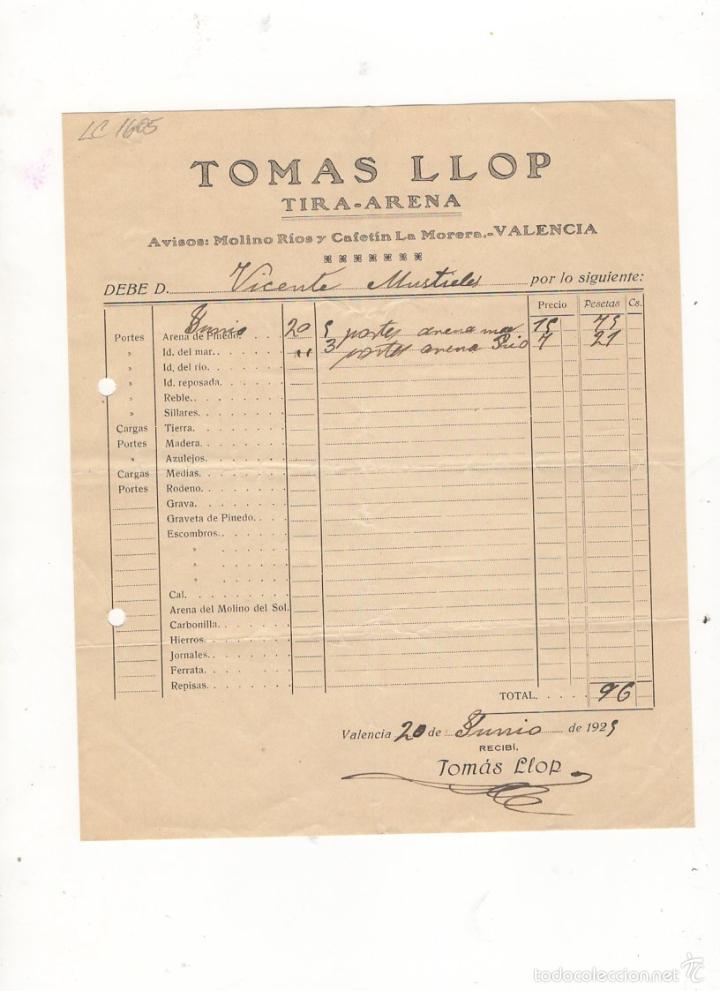 LC 1605
TOMAS LLOP
TIRA-ARENA
Avisos: Molino Ríos y Cafetín La Morera.-VALENCIA
DEBE D. Vicente Mustieles por lo siguiente:
Precio Pesetas Cs.
Junio 20 5 portes arena mar 15 75
Portes Arena de Pinedo.
» Id. del mar. " 3 portes arena Rio 7 21
» Id. del río.
» Id. reposada.
» Reble.
» Sillares.
Cargas Tierra.
Portes Madera.
» Azulejos.
Cargas Medias.
Portes Rodeno.
Grava.
Graveta de Pinedo.
Escombros.
»
»
»
Cal.
Arena del Molino del Sol.
Carbonilla.
Hierros.
Jornales.
Ferrata.
Repisas.
TOTAL. 96
Valencia 20 de Junio de 1925
RECIBÍ,
Tomás Llop
todocoleccion.net